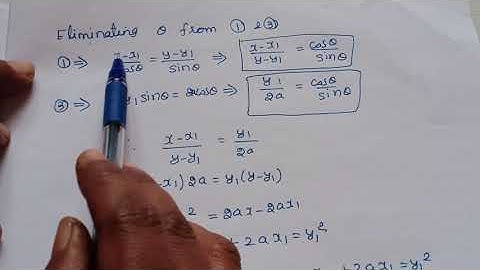 Eliminating θ from ① & ③
① ⇒ x-x₁/cosθ = y-y₁/sinθ ⇒ x-x₁/y-y₁ = cosθ/sinθ
③ ⇒ y₁ sinθ = 2acosθ ⇒ y₁/2a = cosθ/sinθ
x-x₁/y-y₁ = y₁/2a
x₁)2a = y₁(y-y₁)
² = 2ax-2ax₁
+ 2ax₁ = y₁²
+2ax₁ = y₁²